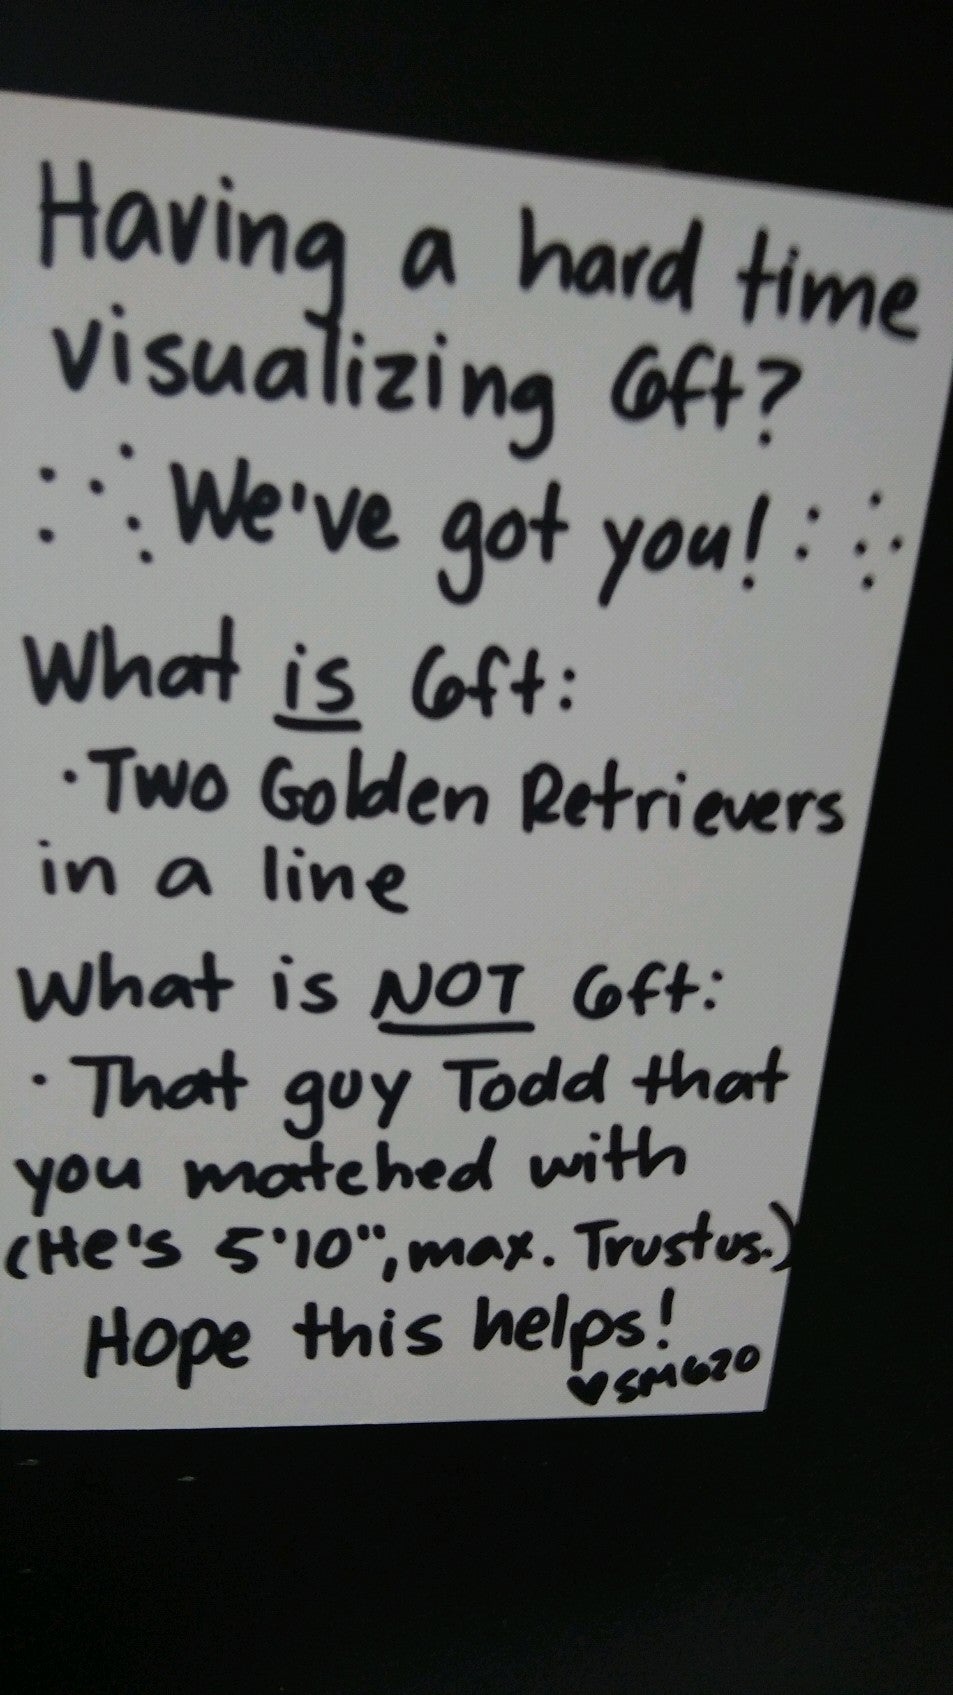 Having a hard time
visualizing 6ft?
We've got you!
What is 6ft:
· Two Golden Retrievers
in a line
What is NOT 6ft:
· That guy Todd that
you matched with
(He's 5'10", max. Trust us.)
Hope this helps!
♥SM620